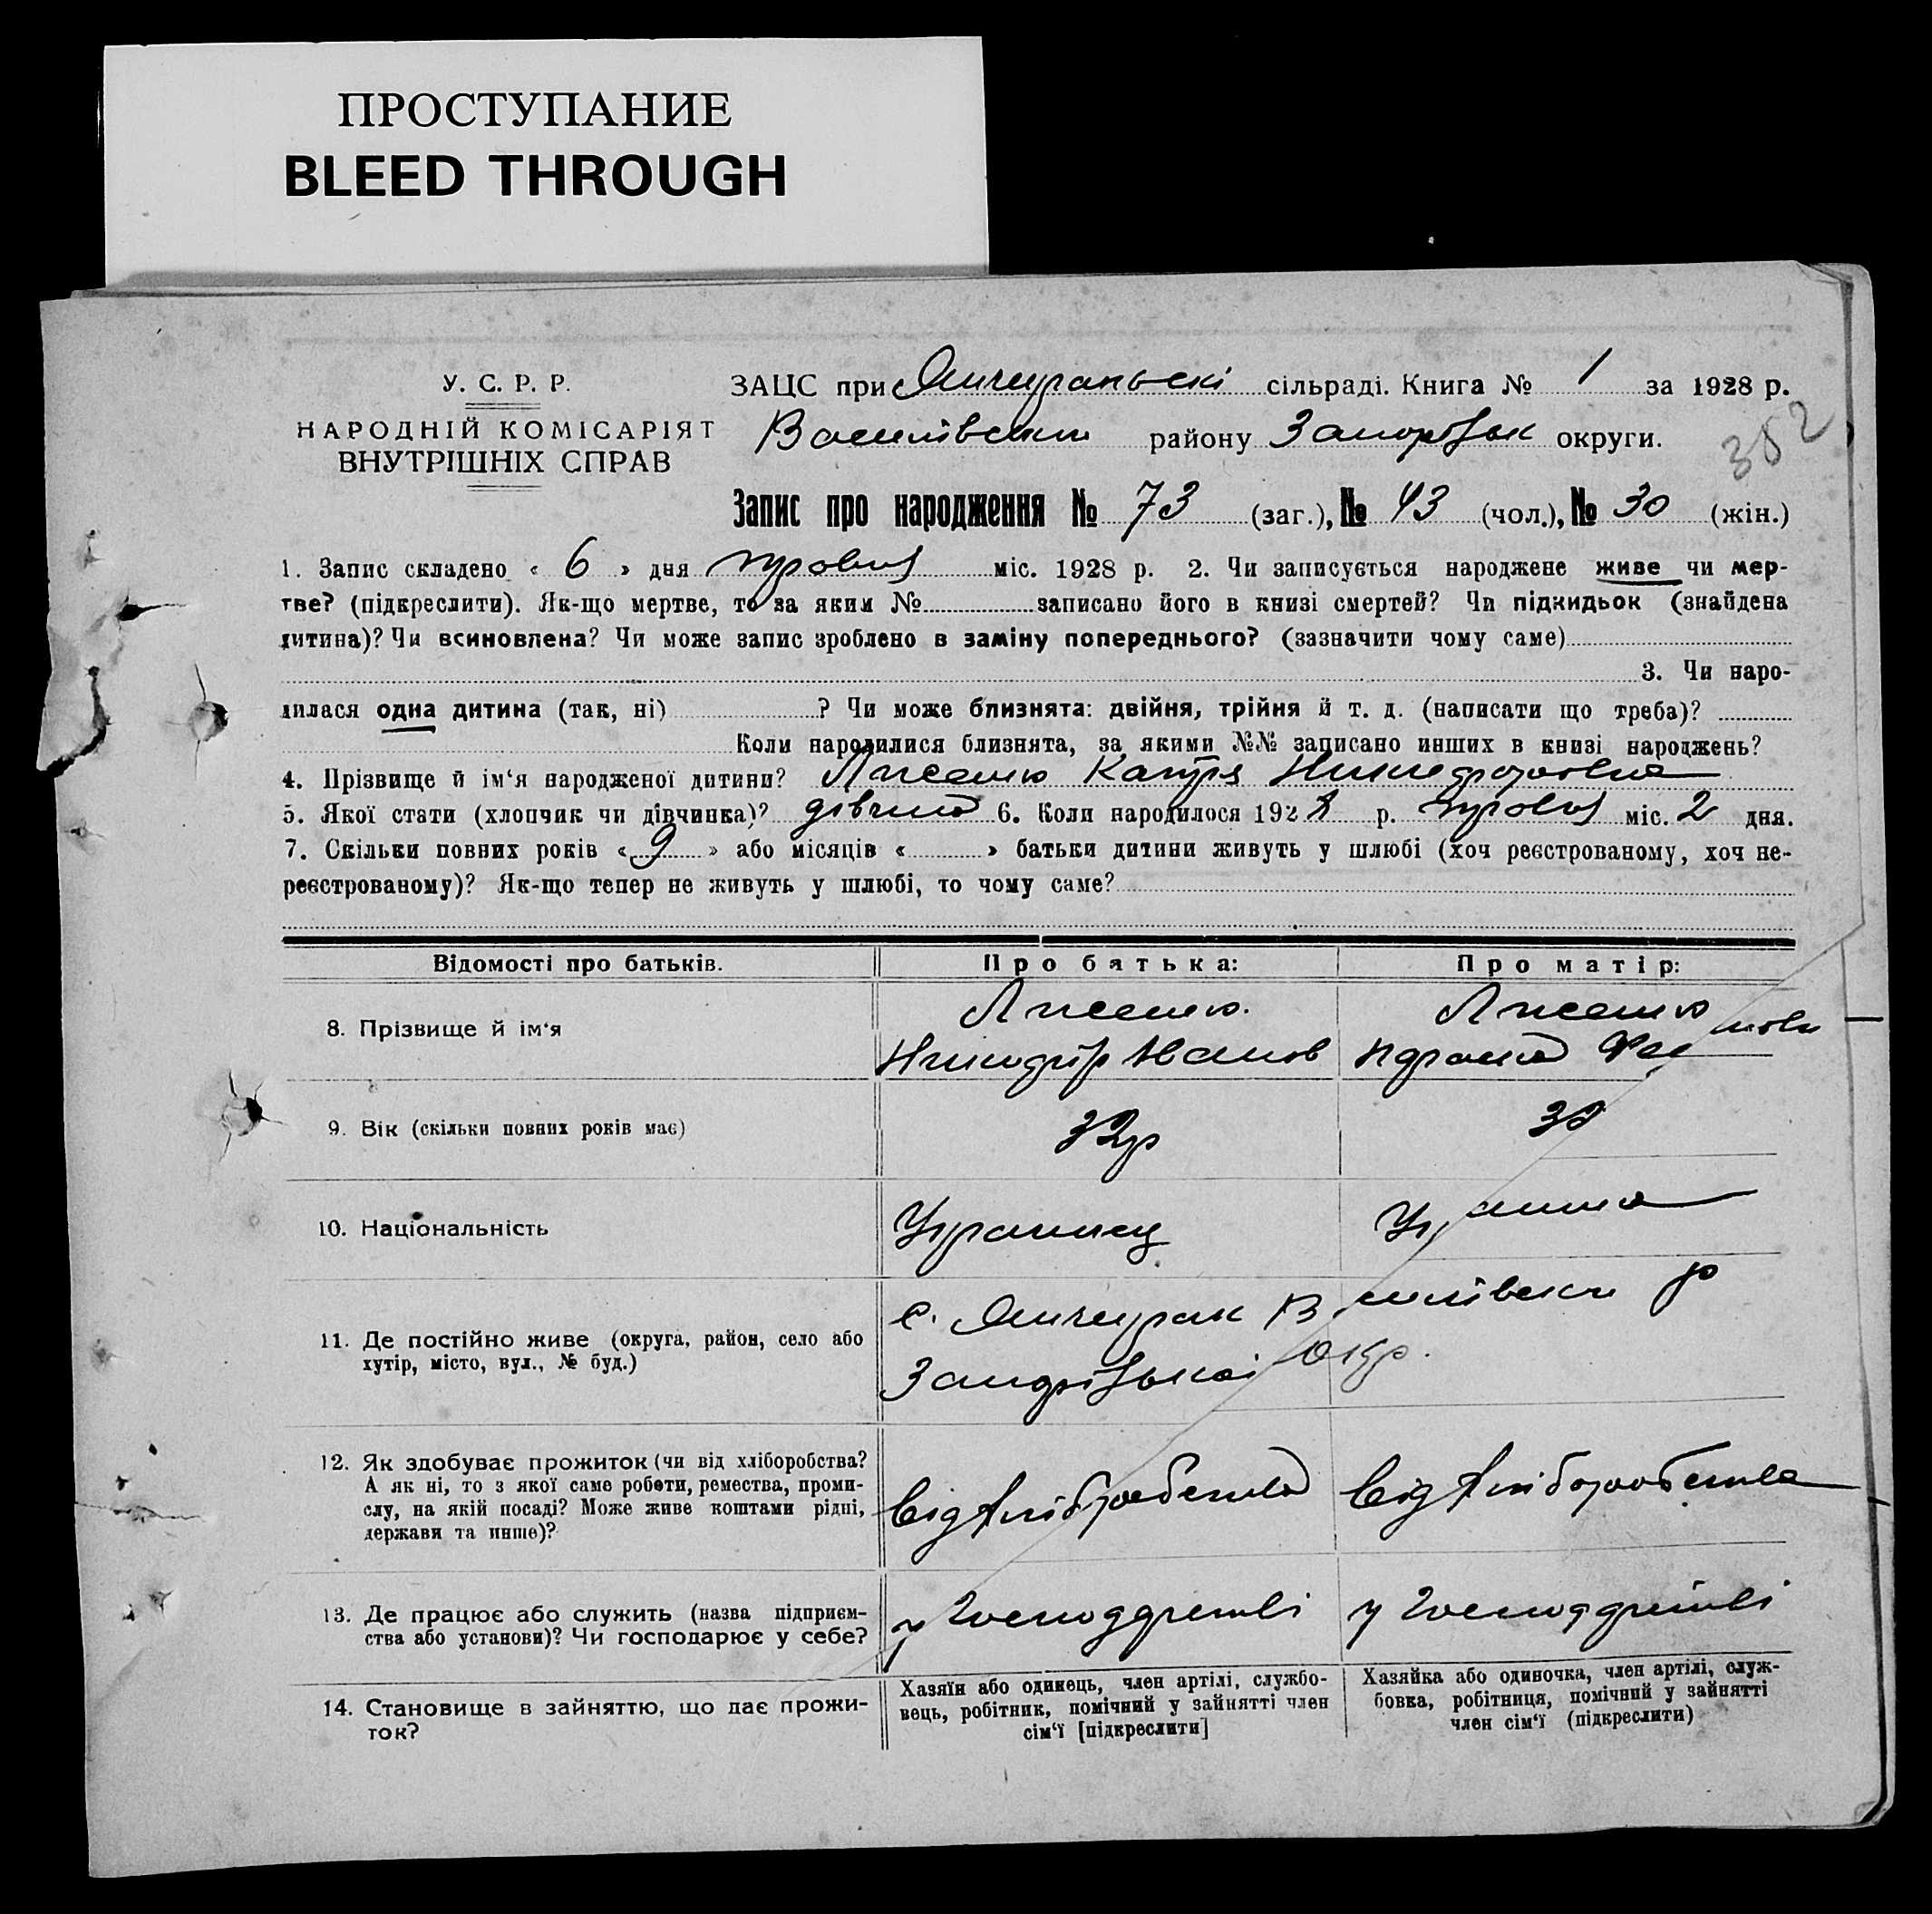 ПРОСТУПАНИЕ
BLEED THROUGH
У. С. Р. Р.
НАРОДНІЙ КОМІСАРІЯТ
ВНУТРІШНІХ СПРАВ
ЗАЦС при Янчекракській сільраді. Книга № 1 за 1928 р.
352
Василівськи району Запорізьк округи.
Запис про народження № 73 (заг.), № 43 (чол.), № 30 (жін.)
1. Запис складено « 6 » дня міс. 1928 р. 2. Чи записується народжене живе чи мер-
тве? (підкреслити). Як-що мертве, то за яким № записано його в книзі смертей? Чи підкидьок (знайдена
дитина)? Чи всиновлена? Чи може запис зроблено в заміну попереднього? (зазначити чому саме)
3. Чи наро-
дилася одна дитина (так, ні) ? Чи може близнята: двійня, трійня й т. д. (написати що треба)?
Коли народилися близнята, за якими №№ записано инших в книзі народжень?
4. Прізвище й ім‘я народженої дитини? Лисенко Катря
5. Якої стати (хлопчик чи дівчинка)? дівчина 6. Коли народилося 1928 р. міс. 2 дня.
7. Скільки повних років « 9 » або місяців « » батьки дитини живуть у шлюбі (хоч реєстрованому, хоч не-
реєстрованому)? Як-що тепер не живуть у шлюбі, то чому саме?
Відомості про батьків. Про батька: Про матір:
8. Прізвище й ім‘я
Лисенко Лисенко
Іванов
9. Вік (скільки повних років має) 32р 32
10. Національність Украинец
11. Де постійно живе (округа, район, село або
хутір, місто, вул., № буд.)
с. Янчекрак Василівськи р
Запорізькоі Окр.
12. Як здобуває прожиток (чи від хліборобства?
А як ні, то з якої саме роботи, ремества, проми-
слу, на якій посаді? Може живе коштами рідні,
держави та инше)?
від хліборобства від хліборобства
13. Де працює або служить (назва підприєм-
ства або установи)? Чи господарює у себе?
у господарстві у господарстві
14. Становище в зайняттю, що дає прожи-
ток?
Хазяїн або одинець, член артілі, службо-
вець, робітник, помічний у зайнятті член
сім‘ї [підкреслити]
Хазяйка або одиночка, член артілі, служ-
бовка, робітниця, помічний у зайнятті
член сім‘ї (підкреслити)